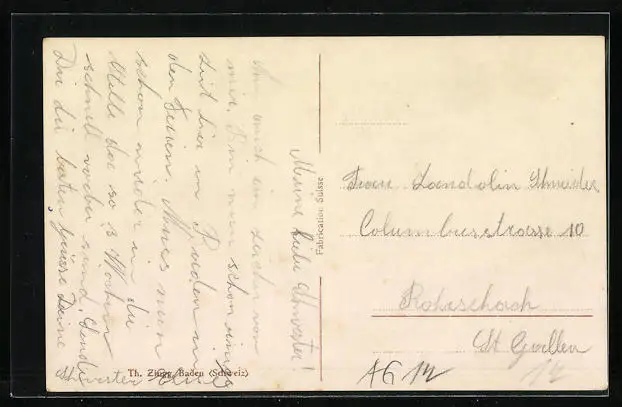 Meine liebe Schwester!
Nun auch ein Zeichen von
mir. Bin nun schon einige
Zeit hier in Baden in
den Ferien. Muss nun
schon wieder in die
Stelle da so 3 Wochen
schnell vorbei sind. Sende
Dir die besten Grüsse Deine
Schwester
Fabrication Suisse
Th. Zingg, Baden (Schweiz)
Frau Landolin Schneider
Columbusstrasse 10
Rohrschach
St Gallen
AG 14
14